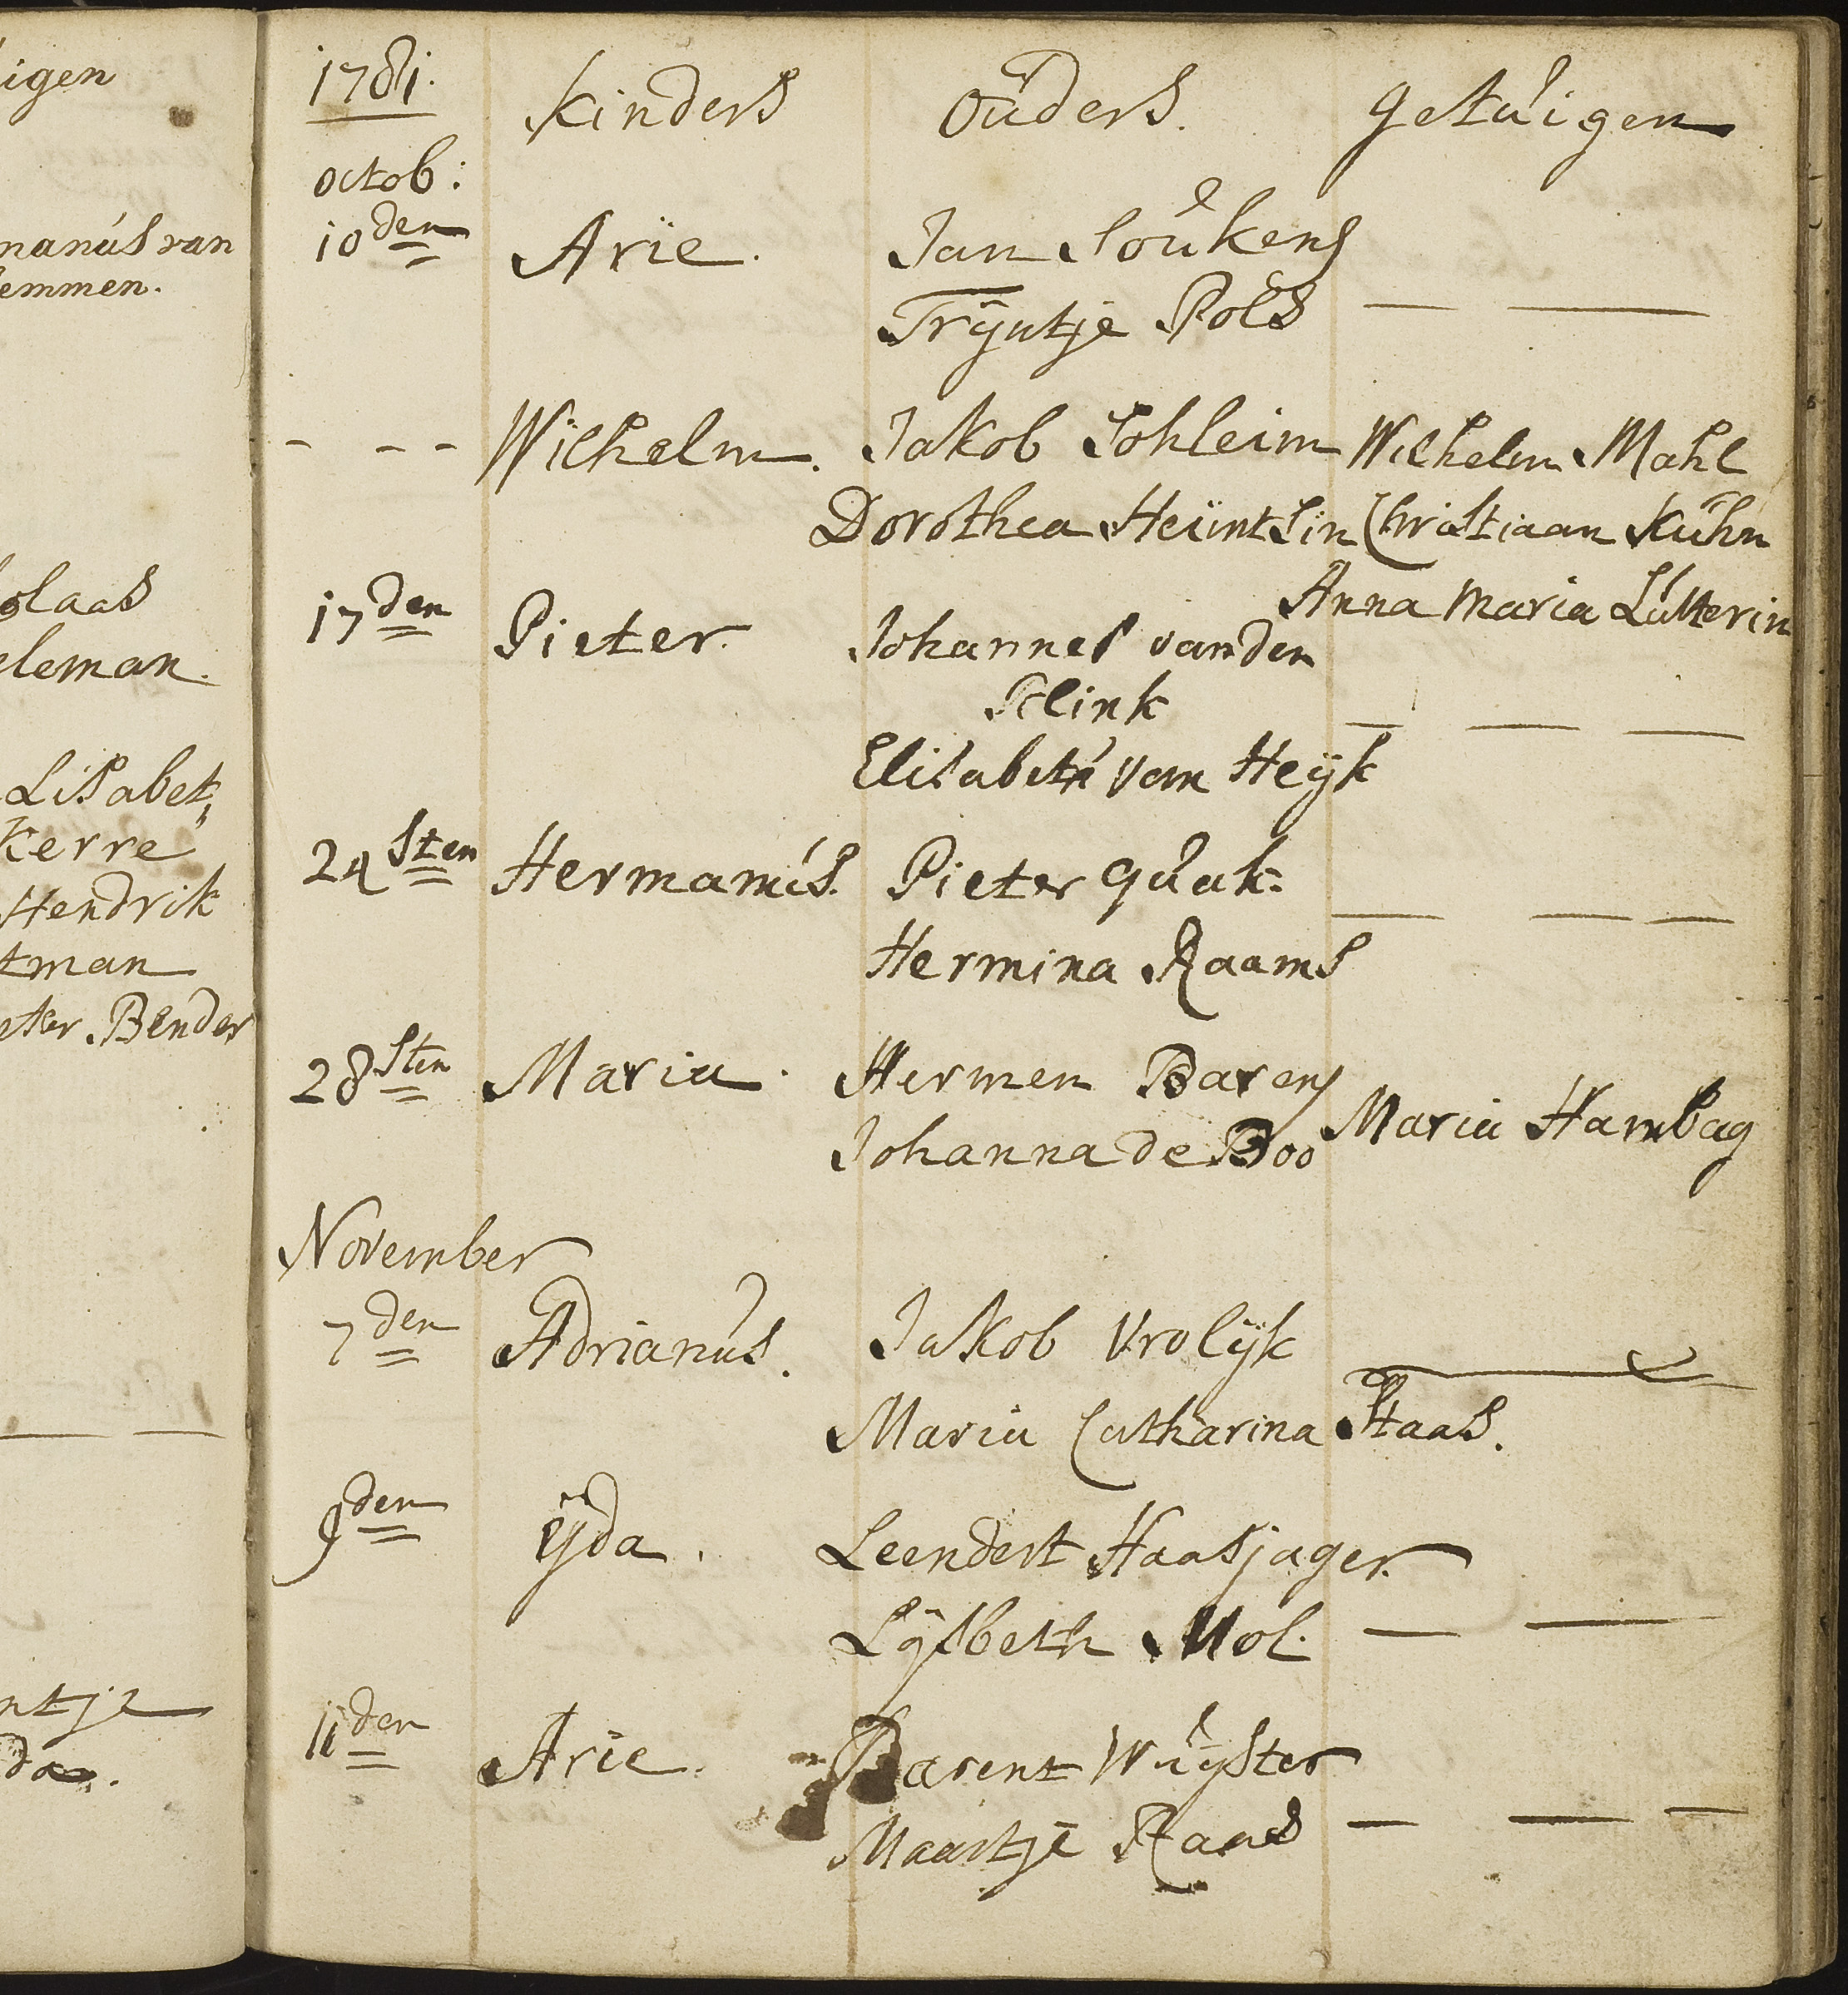 igen
nanus van
emmen.
olaas
eleman.
Lisabet,
Kerre
Hendrik
tman
eter Bender
ntje
da.
1781. Kinders Ouders. Getuigen
octob:
10den Arie. Jan Soukens
Tryntje Pols
- - - Wilhelm. Jakob Sohleim Wilhelm Mahl
Dorothea Heijmtsin Christiaan Kuhn
Anna Maria Lutterin
17den Pieter. Johannes van den
Klink
Elisabeth van Heyk
24sten Hermanus. Pieter Quak.
Hermina Raams
28sten Maria. Hermen Barens
Johanna de Boo Maria Hambag
November
7den Adrianus. Jakob Vrolyk
Maria Catharina Staas.
9den ijda. Leendert Haasjager.
Lysbeth Mol.
11den Arie. Barent Wuyster
Maartje Raas